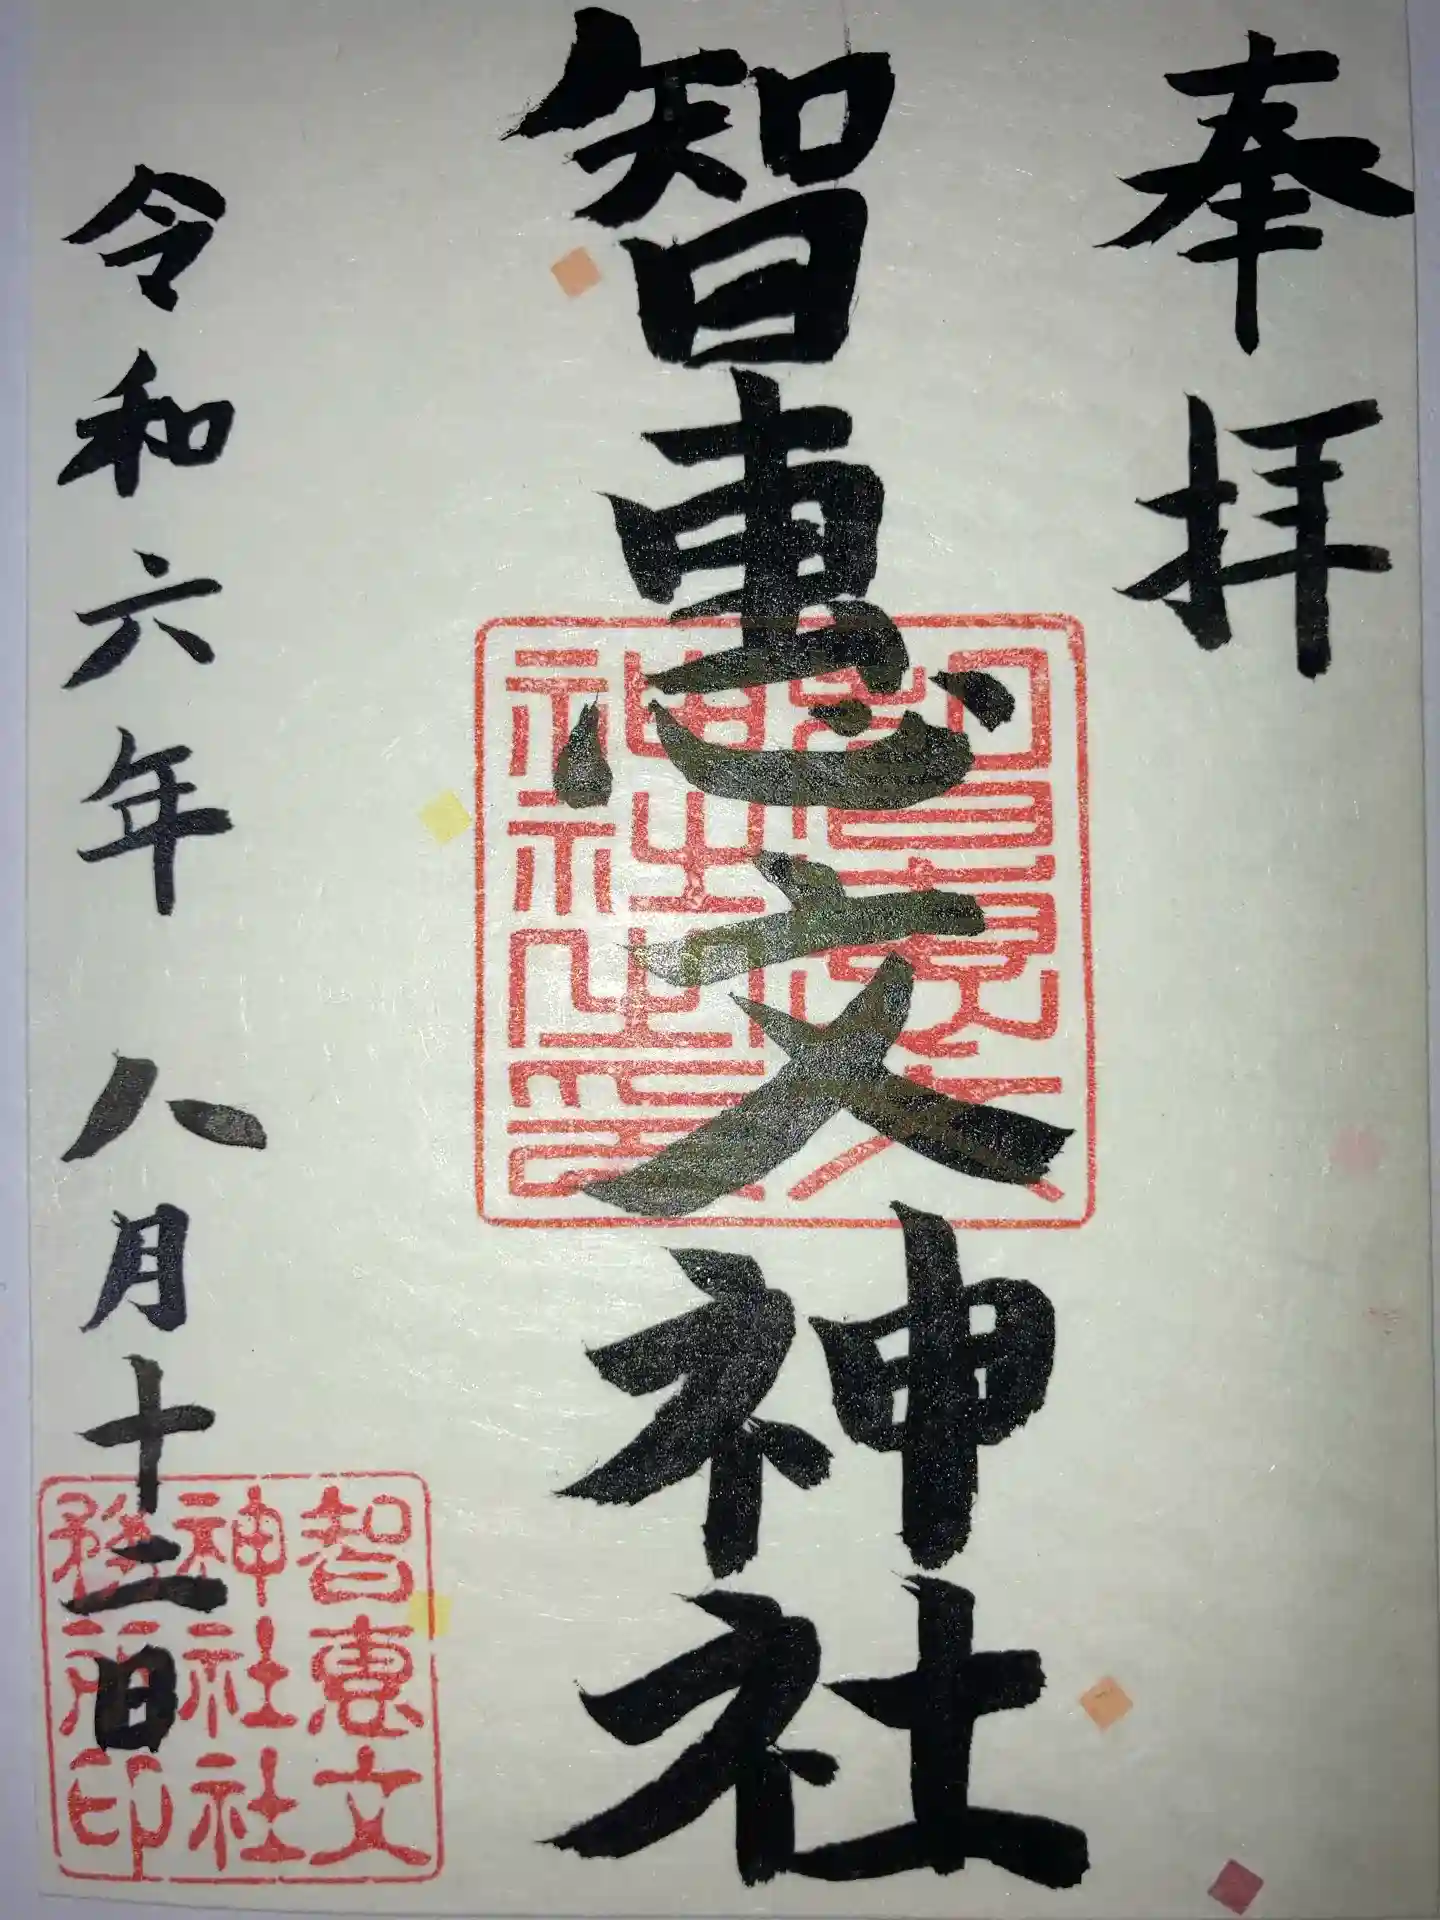 奉拝
智恵文神社
智恵文神社之印
令和六年 八月十二日
智恵文
神社社
務所印